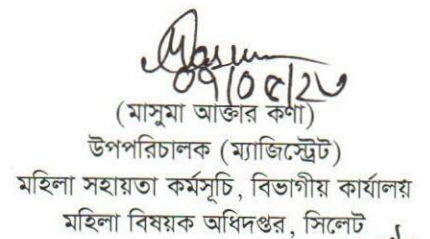 ০৭/০৫/২৩
(মাসুমা আক্তার কণা)
উপপরিচালক (ম্যাজিস্ট্রেট)
মহিলা সহায়তা কর্মসূচি, বিভাগীয় কার্যালয়
মহিলা বিষয়ক অধিদপ্তর, সিলেট